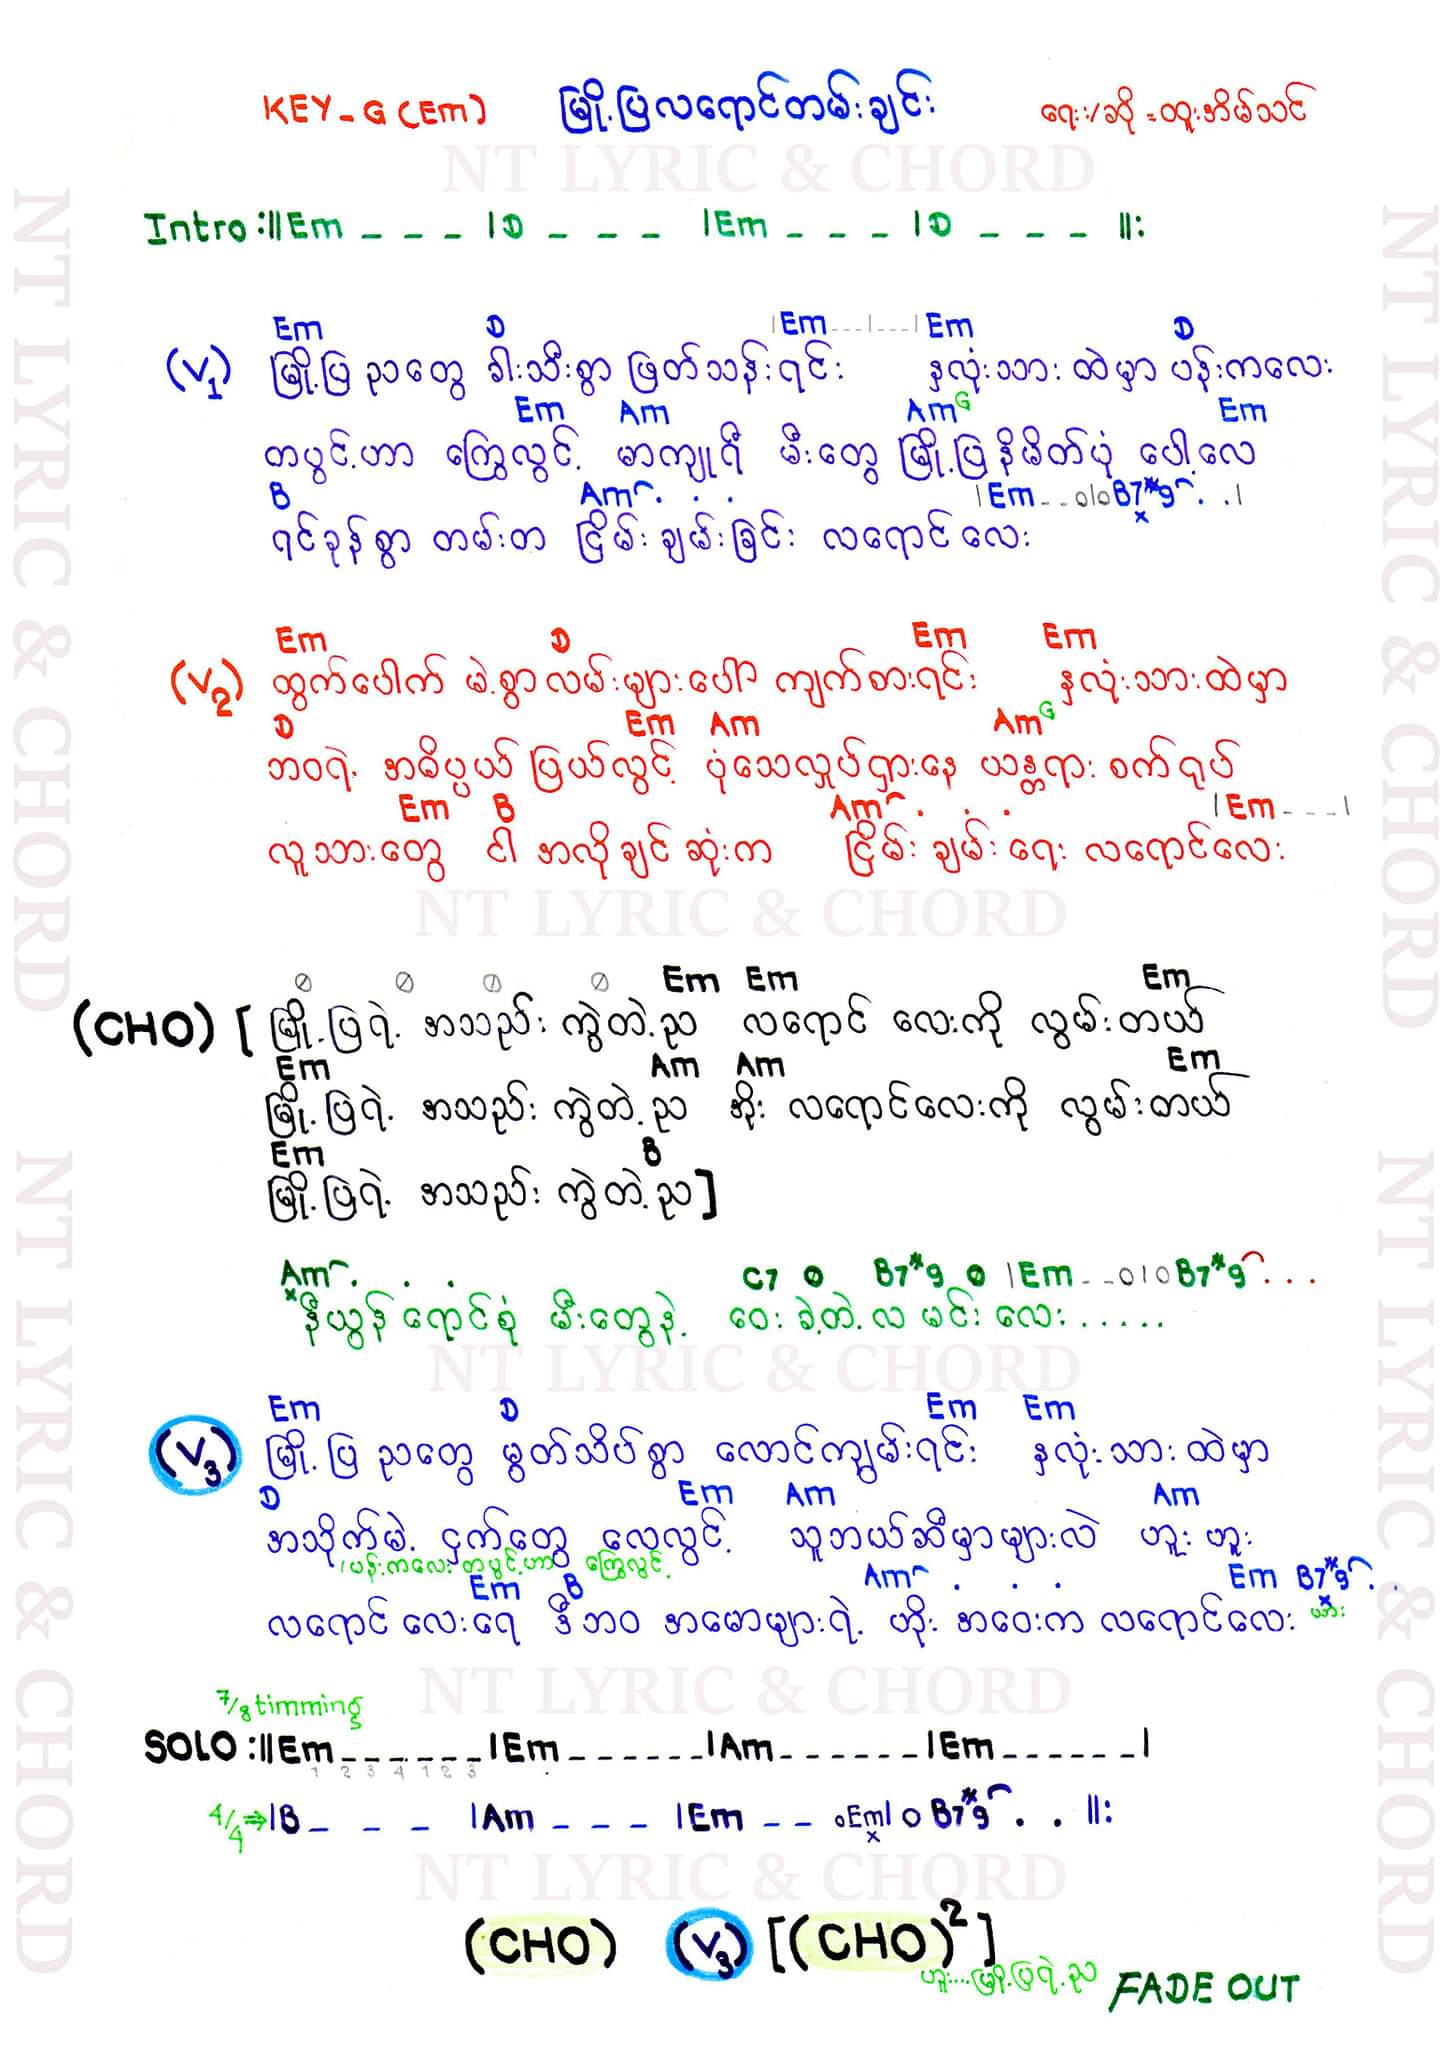 KEY_G (Em) မြို့ပြလရောင်တမ်းချင်း ရေး/ဆို = ထူးအိမ်သင်
NT LYRIC & CHORD
Intro :||Em _ _ _ |D _ _ _ |Em _ _ _ |D _ _ _ ||:
Em D |Em...|...|Em D
(V1) မြို့ပြ ညတွေ ခါးသီးစွာ ဖြတ်သန်းရင်း နှလုံးသား ထဲမှာ ပန်းကလေး
Em Am Am G Em
တပွင့်ဟာ ကြွေလွင့် မာကျူရီ မီးတွေ မြို့ပြနိမိတ်ပုံ ပေါ့လေ
B Am . . . |Em _ _ 0|0 B7#9 . . |
x
ရင်ခုန်စွာ တမ်းတ ငြိမ်းချမ်းခြင်း လရောင်လေး
Em D Em Em
(V2) ထွက်ပေါက် မဲ့စွာ လမ်းများပေါ် ကျက်စားရင်း နှလုံးသားထဲမှာ
D Em Am Am G
ဘဝရဲ့ အဓိပ္ပယ် ပြယ်လွင့် ပုံသေလှုပ်ရှားနေ ယန္တရား စက်ရုပ်
Em B Am . . . |Em _ _ _ |
လူသားတွေ ငါ အလိုချင်ဆုံးက ငြိမ်း ချမ်း ရေး လရောင်လေး
NT LYRIC & CHORD
Ø Ø Ø Ø Em Em Em
(CHO) [ မြို့ပြရဲ့ အသည်း ကွဲတဲ့ည လရောင် လေးကို လွမ်းတယ်
Em Am Am Em
မြို့ပြရဲ့ အသည်း ကွဲတဲ့ည အိုး လရောင်လေးကို လွမ်းတယ်
Em B
မြို့ပြရဲ့ အသည်း ကွဲတဲ့ည ]
Am . . . C7 0 B7#9 0 |Em _ _ 0|0 B7#9 . . .
x
နီယွန် ရောင်စုံ မီးတွေနဲ့ ဝေး ခဲ့တဲ့ လ မင်း လေး .....
NT LYRIC & CHORD
Em D Em Em
(V3) မြို့ပြ ညတွေ မွတ်သိပ်စွာ လောင်ကျွမ်းရင်း နှလုံးသား ထဲမှာ
D Em Am Am
အသိုက်မဲ့ ငှက်တွေ လေလွင့် သူဘယ်ဆီမှာများလဲ ဟူး ဟူး
/ပန်းကလေး တပွင့်ဟာ ကြွေလွင့်
Em B Am . . . Em B7#9 . .
x
လရောင် လေးရေ ဒီဘဝ အမောများရဲ့ ဟိုး အဝေးက လရောင်လေး ဟား
NT LYRIC & CHORD
7/8 timmings
SOLO :||Em _ _ _ _ _ _ |Em _ _ _ _ _ _ |Am _ _ _ _ _ _ |Em _ _ _ _ _ _ |
1 2 3 4 1 2 3
4/4 ⇒ |B _ _ _ |Am _ _ _ |Em _ _ 0Em|0 B7#9 . . ||:
x
NT LYRIC & CHORD
(CHO) (V3) [(CHO)²]
ဟူး....မြို့ပြရဲ့ည FADE OUT
NT LYRIC & CHORD
NT LYRIC & CHORD
NT LYRIC & CHORD
NT LYRIC & CHORD